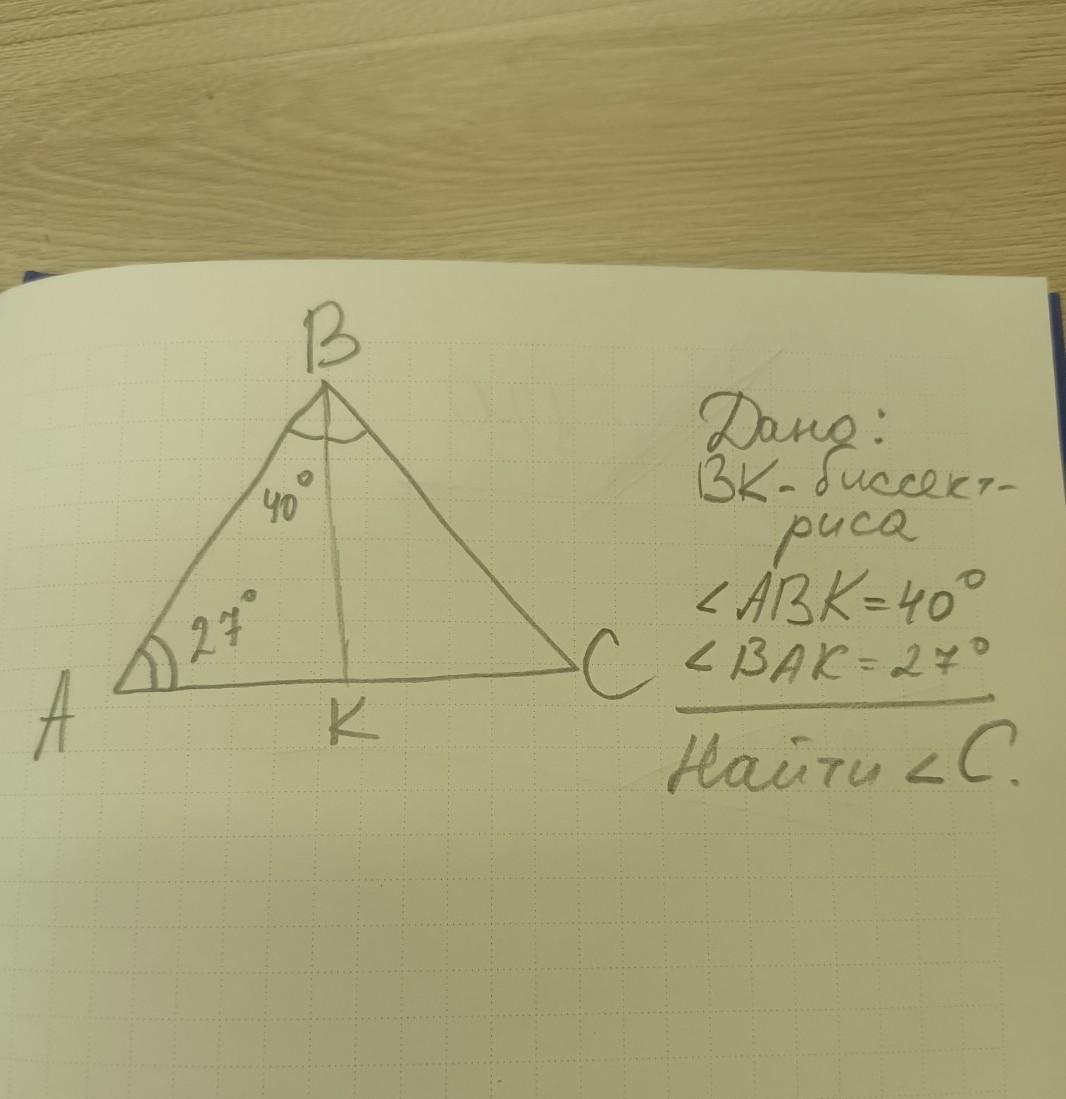 B
40°
27°
A
K
C
Дано:
BK - биссект-
риса
∠ABK = 40°
∠BAK = 27°
Найти ∠C.